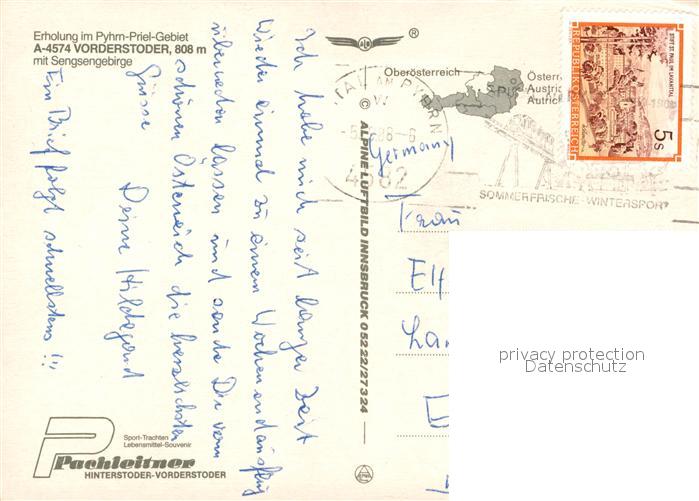 Erholung im Pyhrn-Priel-Gebiet
A-4574 VORDERSTODER, 808 m
mit Sengsengebirge
®
Oberösterreich
Österr
Austri
Autric
REPUBLIK ÖSTERREICH
STIFT ST. PAUL IM LAVANTTAL
5 S
TAL AM PYHRN
86-6
4582
SPI
SOMMERFRISCHE-WINTERSPORT
Ich habe mich seit langer Zeit
wieder einmal zu einem Wochenendausflug
überreden lassen und sende Dir vom
schönen Österreich die herzlichsten
Grüsse
Deine Hildegard
Ein Brief folgt schnellstens !!!
© ALPINE LUFTBILD INNSBRUCK 05222/27324
Germany
Frau
Elf
La
privacy protection
Datenschutz
P
Sport-Trachten
Lebensmittel-Souvenir
Pachleitner
HINTERSTODER-VORDERSTODER